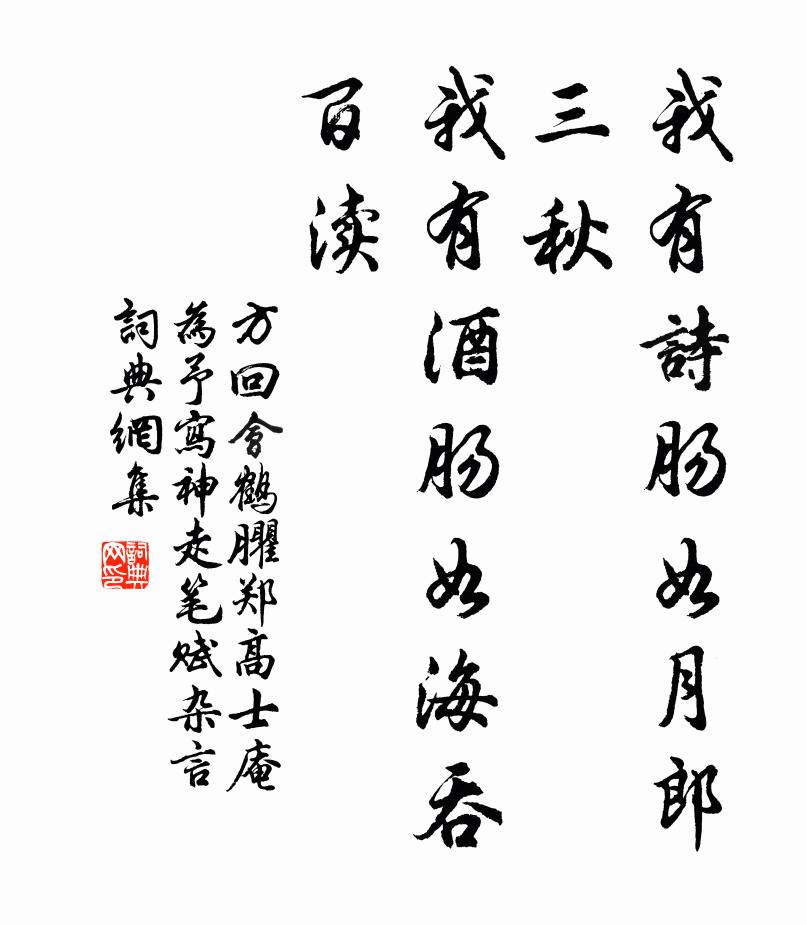 我有詩肠如月郎
三秋
我有酒肠如海吞
百渎
方回會鶴臞郑高士庵
為予寫神走笔赋杂言
詞典網集
詞典
网印